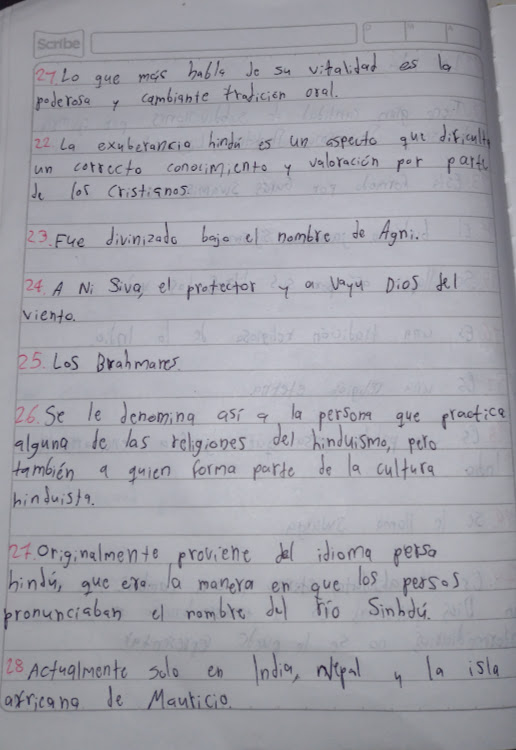 Scribe
21 Lo que más habla de su vitalidad es la
poderosa y cambiante tradición oral.
22. La exuberancia hindú es un aspecto que dificulta
un correcto conocimiento y valoración por parte
de los Cristianos.
23. Fue divinizado bajo el nombre de Agni.
24. A Ni Siva, el protector y a Vayu Dios del
viento.
25. Los Brahmares.
26. Se le denomina así a la persona que practica
alguna de las religiones del hinduismo, pero
también a quien forma parte de la cultura
hinduista.
27. Originalmente proviene del idioma persa
hindú, que era la manera en que los persas
pronunciaban el nombre del río Sinhdú.
28 Actualmente solo en India, Nepal y la isla
africana de Mauricio.